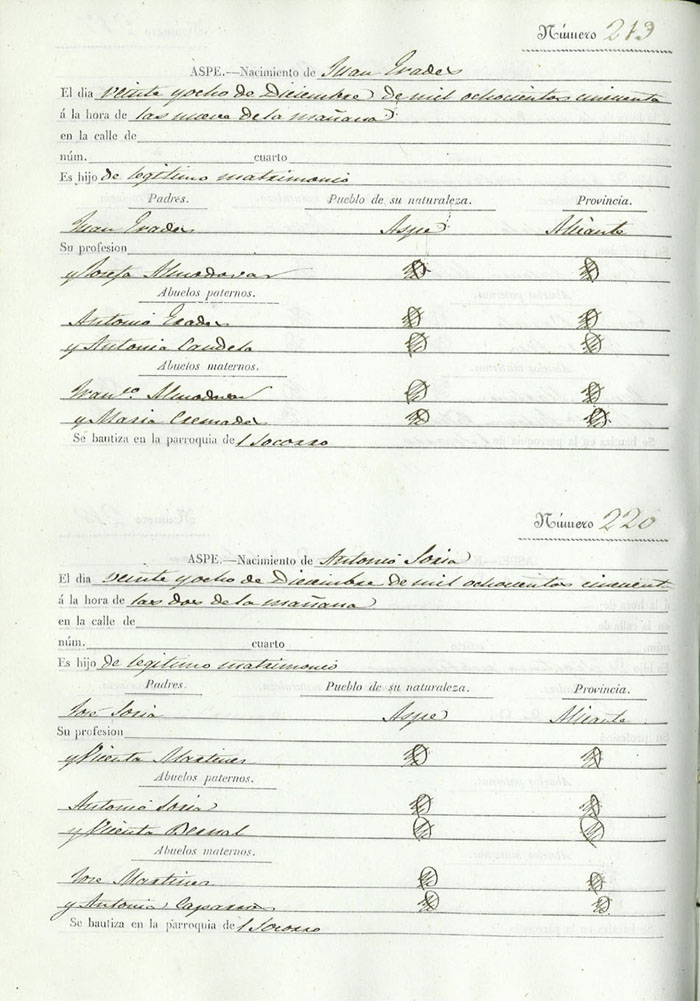 Número 213
ASPE.—Nacimiento de Juan Erades
El dia veinte y ocho de Diciembre de mil ochocientos cincuenta
á la hora de las nueve de la mañana
en la calle de
núm. cuarto
Es hijo de legitimo matrimonio
Padres. Pueblo de su naturaleza. Provincia.
Juan Erades Aspe Alicante
Su profesion
y Josefa Almodovar
Abuelos paternos.
Antonio Erades
y Antonia Candela
Abuelos maternos.
Franco. Almodovar
y Maria Cremades
Se bautiza en la parroquia del Socorro
Número 220
ASPE.—Nacimiento de Antonio Soria
El dia veinte y ocho de Diciembre de mil ochocientos cincuent
á la hora de las dos de la mañana
en la calle de
núm. cuarto
Es hijo de legitimo matrimonio
Padres. Pueblo de su naturaleza. Provincia.
José Soria Aspe Alicante
Su profesion
y Vicenta Martines
Abuelos paternos.
Antonio Soria
y Vicenta Bernal
Abuelos maternos.
Jose Martines
y Antonia
Se bautiza en la parroquia del Socorro